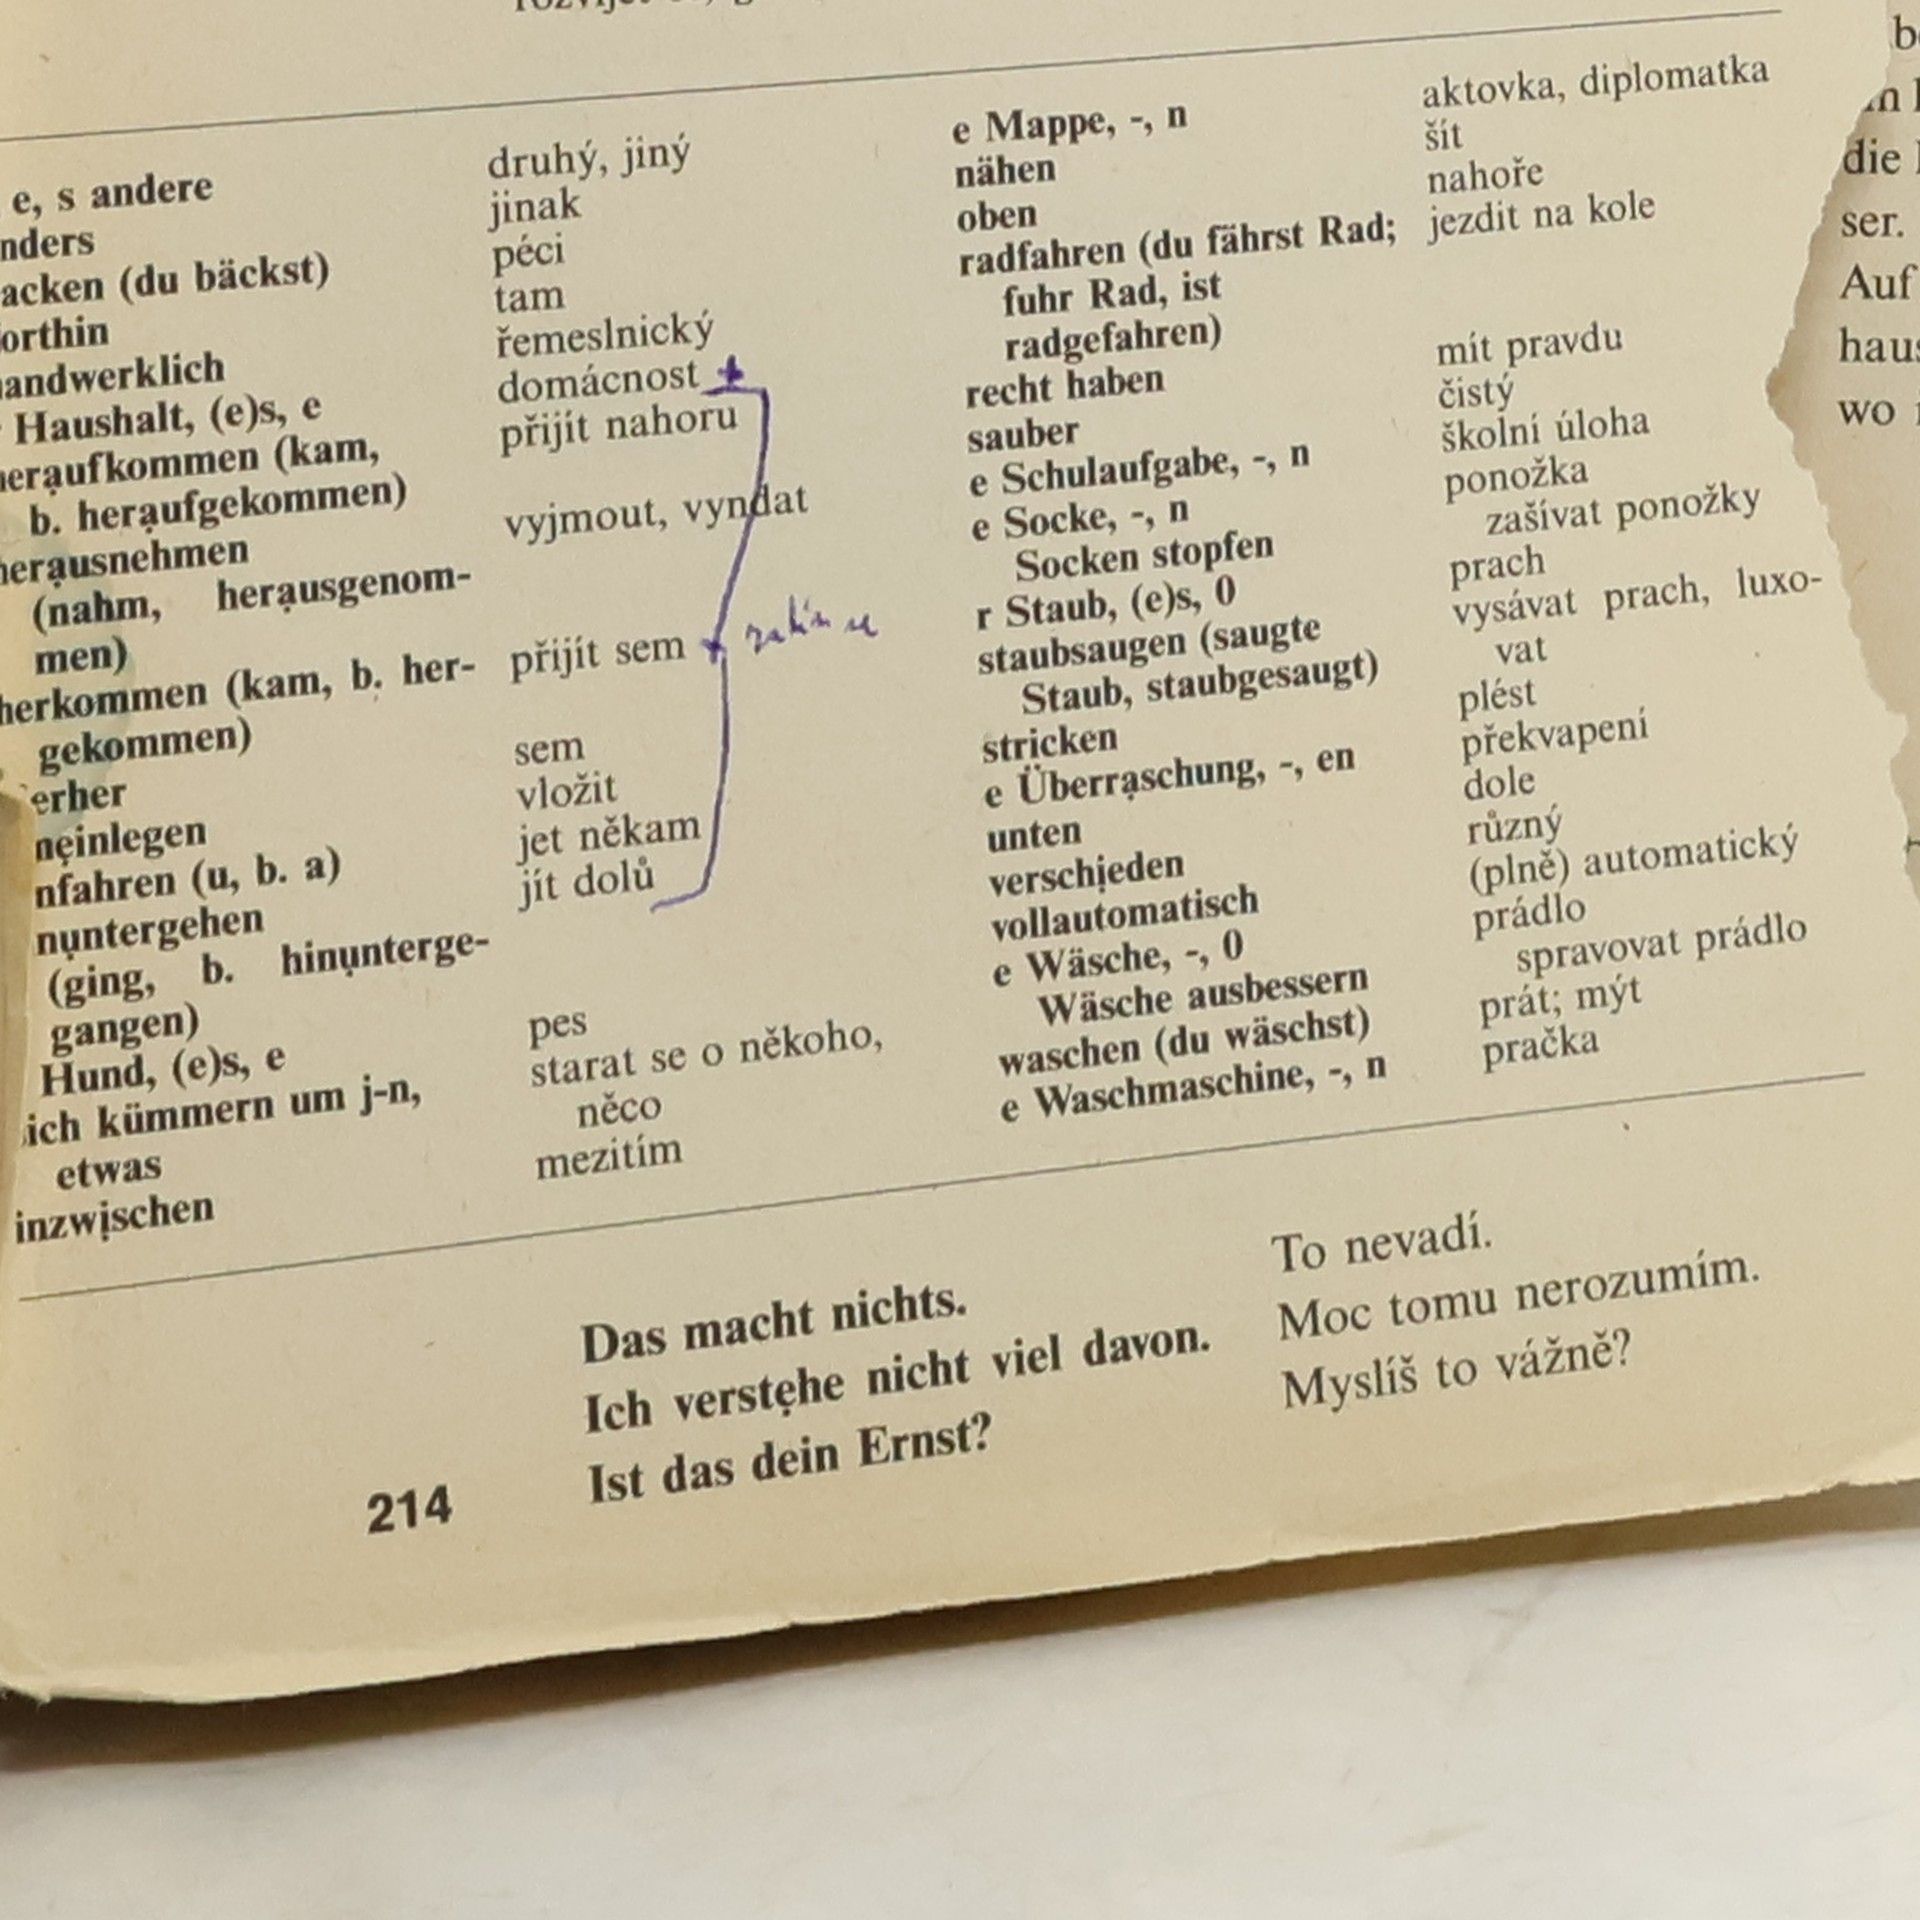 e, s andere
druhý, jiný
nders
jinak
acken (du bäckst)
péci
orthin
tam
andwerklich
řemeslnický
Haushalt, (e)s, e
domácnost
heraufkommen (kam,
přijít nahoru
b. heraufgekommen)
herausnehmen
vyjmout, vyndat
(nahm, herausgenom-
men)
herkommen (kam, b. her-
přijít sem
gekommen)
erher
sem
neinlegen
vložit
nfahren (u, b. a)
jet někam
nuntergehen
jít dolů
(ging, b. hinunterge-
gangen)
Hund, (e)s, e
pes
ich kümmern um j-n,
starat se o někoho,
etwas
něco
inzwischen
mezitím
e Mappe, -, n
aktovka, diplomatka
nähen
šít
oben
nahoře
radfahren (du fährst Rad;
jezdit na kole
fuhr Rad, ist
radgefahren)
recht haben
mít pravdu
sauber
čistý
e Schulaufgabe, -, n
školní úloha
e Socke, -, n
ponožka
Socken stopfen
zašívat ponožky
r Staub, (e)s, 0
prach
staubsaugen (saugte
vysávat prach, luxo-
Staub, staubgesaugt)
vat
stricken
plést
e Überraschung, -, en
překvapení
unten
dole
verschieden
různý
vollautomatisch
(plně) automatický
e Wäsche, -, 0
prádlo
Wäsche ausbessern
spravovat prádlo
waschen (du wäschst)
prát; mýt
e Waschmaschine, -, n
pračka
Das macht nichts.
To nevadí.
Ich verstehe nicht viel davon.
Moc tomu nerozumím.
Ist das dein Ernst?
Myslíš to vážně?
214
die
ser.
Auf
haus
wo